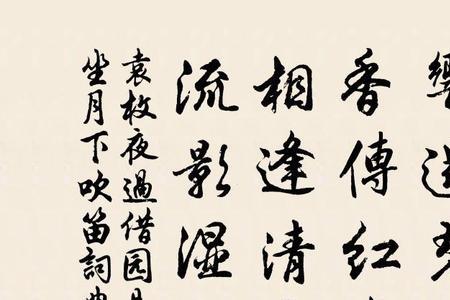 香傳紅
相逢清
流影湿
袁枚夜過借园
坐月下吹笛詞